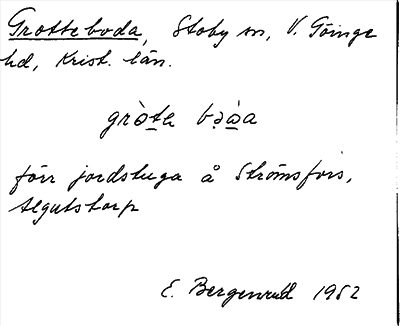 Grotteboda, Stoby sn, V. Göinge
hd, Krist. län.
förr jordstuga å Strömsfors,
Algutstorp
E. Bergenrud 1952